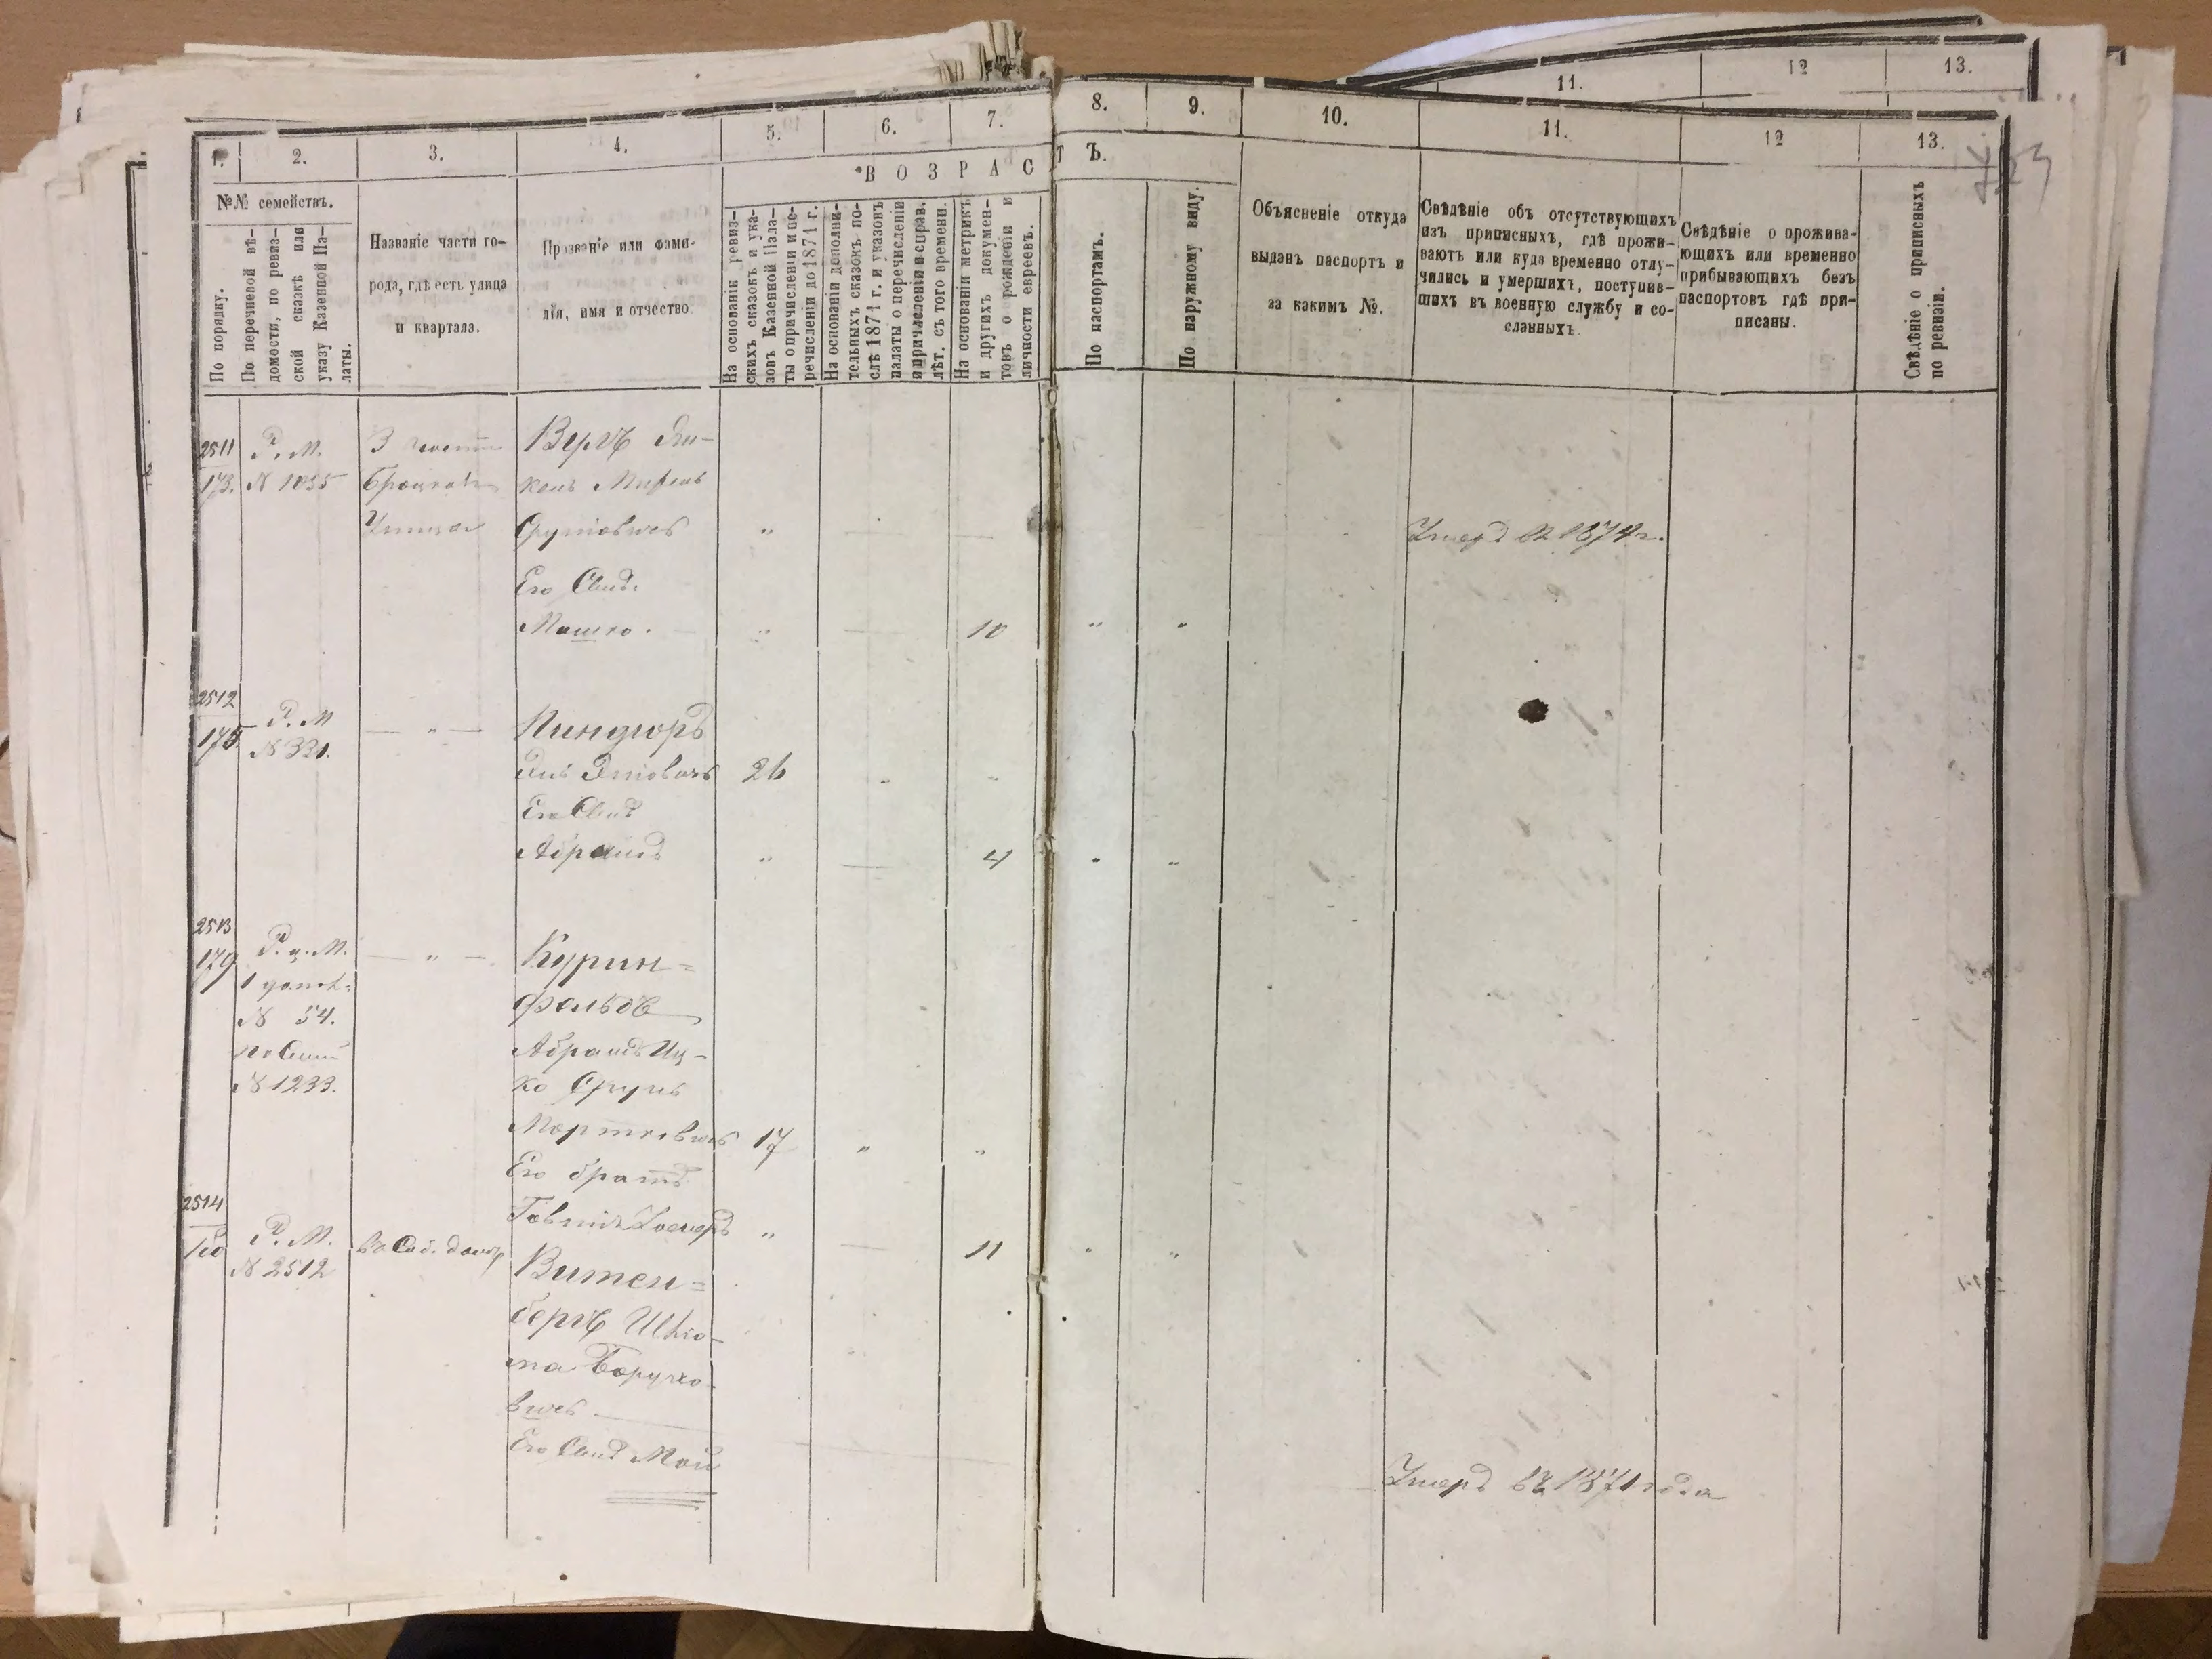 11.
12
13.
1.
2.
3.
4.
5.
6.
7.
8.
9.
10.
11.
12
13.
ВОЗРАС
ТЪ.
№№ семействъ.
По порядку.
По перечневой вѣ-
домости, по ревиз-
ской сказкѣ или
указу Казенной Па-
латы.
Названіе части го-
рода, гдѣ есть улица
и квартала.
Прозваніе или фами-
лія, имя и отчество
На основаніи ревиз-
скихъ сказокъ и ука-
зовъ Казенной Пала-
ты о причисленіи и пе-
речисленіи до 1871 г.
На основаніи дополни-
тельныхъ сказокъ по-
слѣ 1871 г. и указовъ
палаты о перечисленіи
и причисленіи и справ.
лѣт. съ того времени.
На основаніи метрикъ
и другихъ докумен-
товъ о рожденіи и
личности евреевъ.
По паспортамъ.
По наружному виду.
Объясненіе откуда
выданъ паспортъ и
за какимъ №.
Свѣдѣніе объ отсутствующихъ
изъ приписныхъ, гдѣ прожи-
ваютъ или куда временно отлу-
чились и умершихъ, поступив-
шихъ въ военную службу и со-
сланныхъ.
Свѣдѣніе о прожива-
ющихъ или временно
прибывающихъ безъ
паспортовъ гдѣ при-
писаны.
Свѣдѣніе о приписныхъ
по ревизіи.
2511
173.
Р. М.
N 1055
3 части
Улица
Вергъ
Срулiовичъ
Умеръ въ 1874 г.
Его Сынъ
Мошко.
10
2512
175
Р. М
N 331.
Пиндюръ
26
Его Сынъ
Абрамъ
4
2513
179
N 54.
N 1233.
Курин=
фельдъ
Абрамъ Иц-
ко Сруль
17
Его братъ
11
2514
180
Р. М.
N 2512
Витен=
бергъ
Борухо-
вичъ
Его Сынъ
Умеръ въ 1871 года